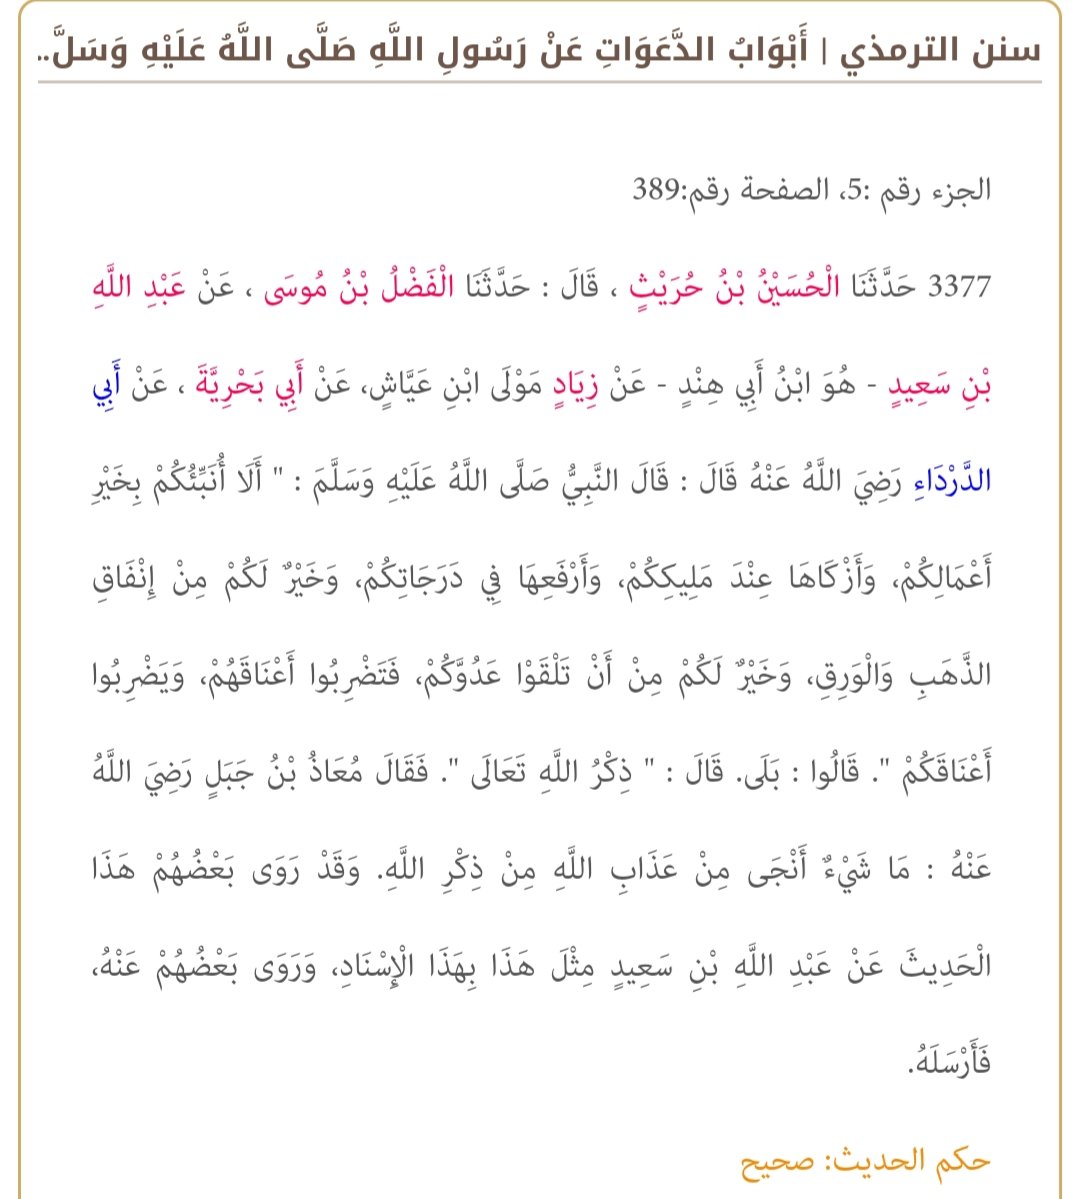 سنن الترمذي | أَبْوَابُ الدَّعَوَاتِ عَنْ رَسُولِ اللَّهِ صَلَّى اللَّهُ عَلَيْهِ وَسَلَّ..
الجزء رقم :5، الصفحة رقم:389
3377 حَدَّثَنَا الْحُسَيْنُ بْنُ حُرَيْثٍ ، قَالَ : حَدَّثَنَا الْفَضْلُ بْنُ مُوسَى ، عَنْ عَبْدِ اللَّهِ
بْنِ سَعِيدٍ - هُوَ ابْنُ أَبِي هِنْدٍ - عَنْ زِيَادٍ مَوْلَى ابْنِ عَيَّاشٍ، عَنْ أَبِي بَحْرِيَّةَ ، عَنْ أَبِي
الدَّرْدَاءِ رَضِيَ اللَّهُ عَنْهُ قَالَ : قَالَ النَّبِيُّ صَلَّى اللَّهُ عَلَيْهِ وَسَلَّمَ : " أَلَا أُنَبِّئُكُمْ بِخَيْرِ
أَعْمَالِكُمْ، وَأَزْكَاهَا عِنْدَ مَلِيكِكُمْ، وَأَرْفَعِهَا فِي دَرَجَاتِكُمْ، وَخَيْرٌ لَكُمْ مِنْ إِنْفَاقِ
الذَّهَبِ وَالْوَرِقِ، وَخَيْرٌ لَكُمْ مِنْ أَنْ تَلْقَوْا عَدُوَّكُمْ، فَتَضْرِبُوا أَعْنَاقَهُمْ، وَيَضْرِبُوا
أَعْنَاقَكُمْ ". قَالُوا : بَلَى. قَالَ : " ذِكْرُ اللَّهِ تَعَالَى ". فَقَالَ مُعَاذُ بْنُ جَبَلٍ رَضِيَ اللَّهُ
عَنْهُ : مَا شَيْءٌ أَنْجَى مِنْ عَذَابِ اللَّهِ مِنْ ذِكْرِ اللَّهِ. وَقَدْ رَوَى بَعْضُهُمْ هَذَا
الْحَدِيثَ عَنْ عَبْدِ اللَّهِ بْنِ سَعِيدٍ مِثْلَ هَذَا بِهَذَا الْإِسْنَادِ، وَرَوَى بَعْضُهُمْ عَنْهُ،
فَأَرْسَلَهُ.
حكم الحديث: صحيح